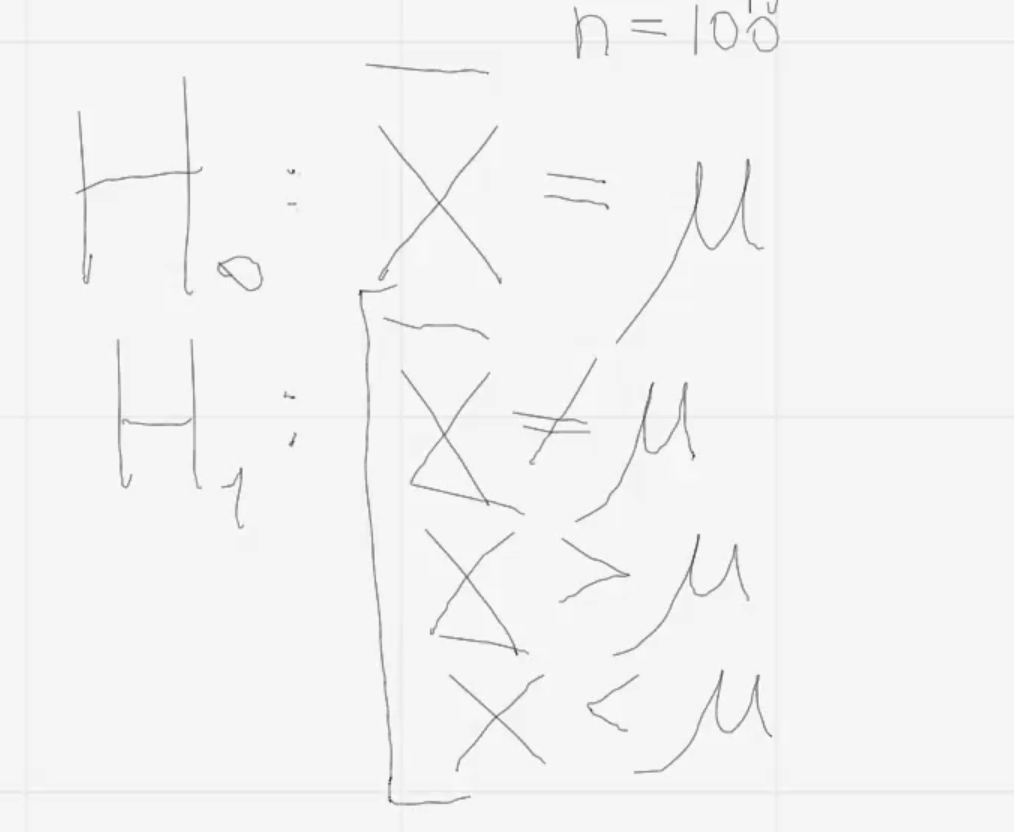 n = 100
H₀ : X̄ = μ
H₁ : [ X̄ ≠ μ
X̄ > μ
X̄ < μ